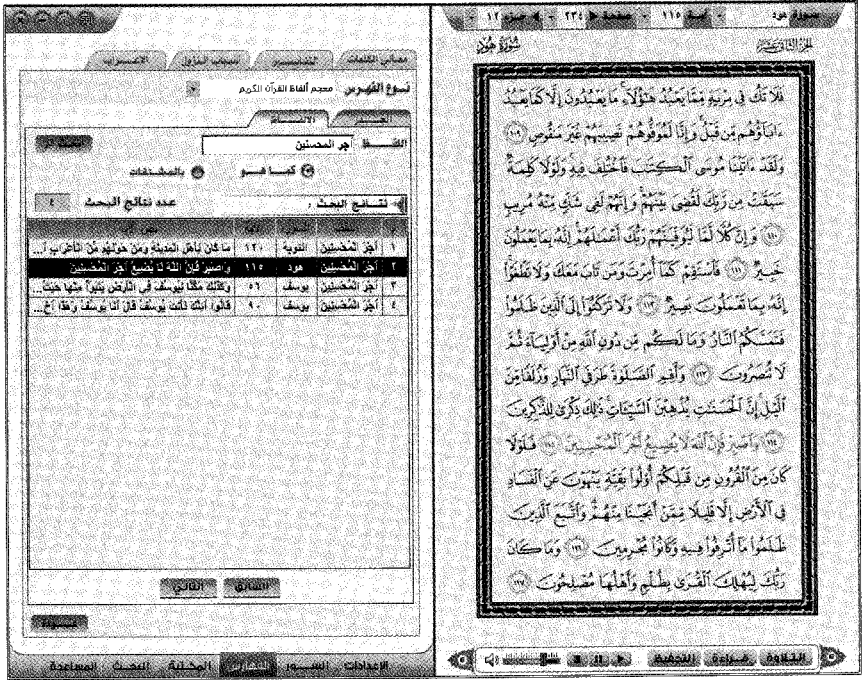 سورة هود - آية ١١٥ - صفحة ٢٣٤ - جزء ١٢
الجزء الثاني عشر
سورة هود
فَلَا تَكُ فِي مِرْيَةٍ مِّمَّا يَعْبُدُ هَٰٓؤُلَآءِ مَا يَعْبُدُونَ إِلَّا كَمَا يَعْبُدُ
ءَابَآؤُهُم مِّن قَبْلُ وَإِنَّا لَمُوَفُّوهُمْ نَصِيبَهُمْ غَيْرَ مَنقُوصٍ ١٠٩
وَلَقَدْ ءَاتَيْنَا مُوسَى ٱلْكِتَٰبَ فَٱخْتُلِفَ فِيهِ وَلَوْلَا كَلِمَةٌ
سَبَقَتْ مِن رَّبِّكَ لَقُضِيَ بَيْنَهُمْ وَإِنَّهُمْ لَفِي شَكٍّ مِّنْهُ مُرِيبٍ
١١٠ وَإِنَّ كُلًّا لَّمَّا لَيُوَفِّيَنَّهُمْ رَبُّكَ أَعْمَٰلَهُمْ إِنَّهُۥ بِمَا يَعْمَلُونَ
خَبِيرٌ ١١١ فَٱسْتَقِمْ كَمَآ أُمِرْتَ وَمَن تَابَ مَعَكَ وَلَا تَطْغَوْا۟
إِنَّهُۥ بِمَا تَعْمَلُونَ بَصِيرٌ ١١٢ وَلَا تَرْكَنُوٓا۟ إِلَى ٱلَّذِينَ ظَلَمُوا۟
فَتَمَسَّكُمُ ٱلنَّارُ وَمَا لَكُم مِّن دُونِ ٱللَّهِ مِنْ أَوْلِيَآءَ ثُمَّ
لَا تُنصَرُونَ ١١٣ وَأَقِمِ ٱلصَّلَوٰةَ طَرَفَيِ ٱلنَّهَارِ وَزُلَفًا مِّنَ
ٱلَّيْلِ إِنَّ ٱلْحَسَنَٰتِ يُذْهِبْنَ ٱلسَّيِّـَٔاتِ ذَٰلِكَ ذِكْرَىٰ لِلذَّٰكِرِينَ
١١٤ وَٱصْبِرْ فَإِنَّ ٱللَّهَ لَا يُضِيعُ أَجْرَ ٱلْمُحْسِنِينَ ١١٥ فَلَوْلَا
كَانَ مِنَ ٱلْقُرُونِ مِن قَبْلِكُمْ أُو۟لُوا۟ بَقِيَّةٍ يَنْهَوْنَ عَنِ ٱلْفَسَادِ
فِي ٱلْأَرْضِ إِلَّا قَلِيلًا مِّمَّنْ أَنجَيْنَا مِنْهُمْ وَٱتَّبَعَ ٱلَّذِينَ
ظَلَمُوا۟ مَآ أُتْرِفُوا۟ فِيهِ وَكَانُوا۟ مُجْرِمِينَ ١١٦ وَمَا كَانَ
رَبُّكَ لِيُهْلِكَ ٱلْقُرَىٰ بِظُلْمٍ وَأَهْلُهَا مُصْلِحُونَ ١١٧
التلاوة قراءة التحفيظ
معاني الكلمات التفاسير أسباب النزول الإعراب
نوع الفهرس معجم ألفاظ القرآن الكريم
الألفاظ
اللفظ أجر المحسنين
كما هو بالمشتقات
نتائج البحث : عدد نتائج البحث ٤
١ أَجْرَ الْمُحْسِنِينَ التوبة ١٢٠ مَا كَانَ لِأَهْلِ الْمَدِينَةِ وَمَنْ حَوْلَهُمْ مِنَ الْأَعْرَابِ ...
٢ أَجْرَ الْمُحْسِنِينَ هود ١١٥ وَاصْبِرْ فَإِنَّ اللَّهَ لَا يُضِيعُ أَجْرَ الْمُحْسِنِينَ
٣ أَجْرَ الْمُحْسِنِينَ يوسف ٥٦ وَكَذَلِكَ مَكَّنَّا لِيُوسُفَ فِي الْأَرْضِ يَتَبَوَّأُ مِنْهَا حَيْثُ...
٤ أَجْرَ الْمُحْسِنِينَ يوسف ٩٠ قَالُوا أَئِنَّكَ لَأَنْتَ يُوسُفُ قَالَ أَنَا يُوسُفُ وَهَذَا أَخِ...
السابق التالي
الإعدادات السور الفهارس المكتبة البحث المساعدة